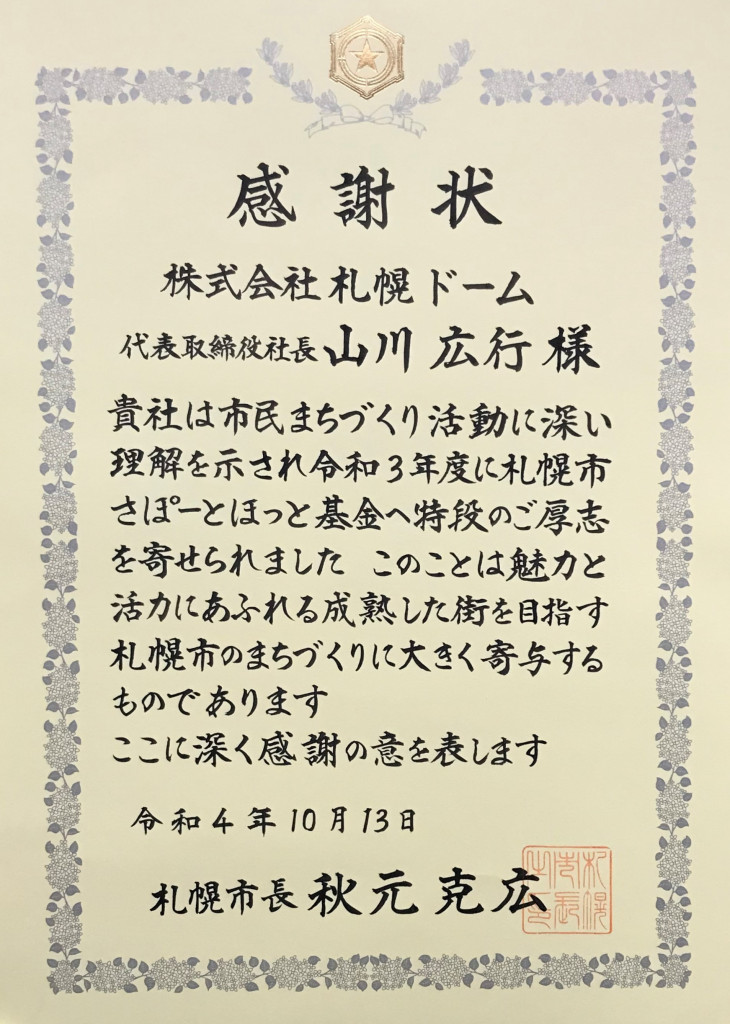 感謝状
株式会社 札幌ドーム
代表取締役社長 山川 広行 様
貴社は市民まちづくり活動に深い
理解を示され令和3年度に札幌市
さぽーとほっと基金へ特段のご厚志
を寄せられました このことは魅力と
活力にあふれる成熟した街を目指す
札幌市のまちづくりに大きく寄与する
ものであります
ここに深く感謝の意を表します
令和4年10月13日
札幌市長 秋元 克広
札幌市長之印